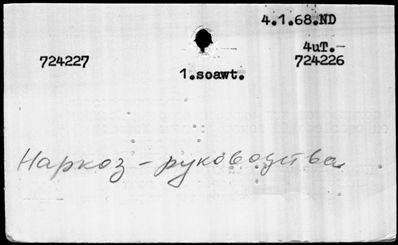 4.1.68.ND
4uT.-
724227
724226
1.soawt.
Наркоз - руководства